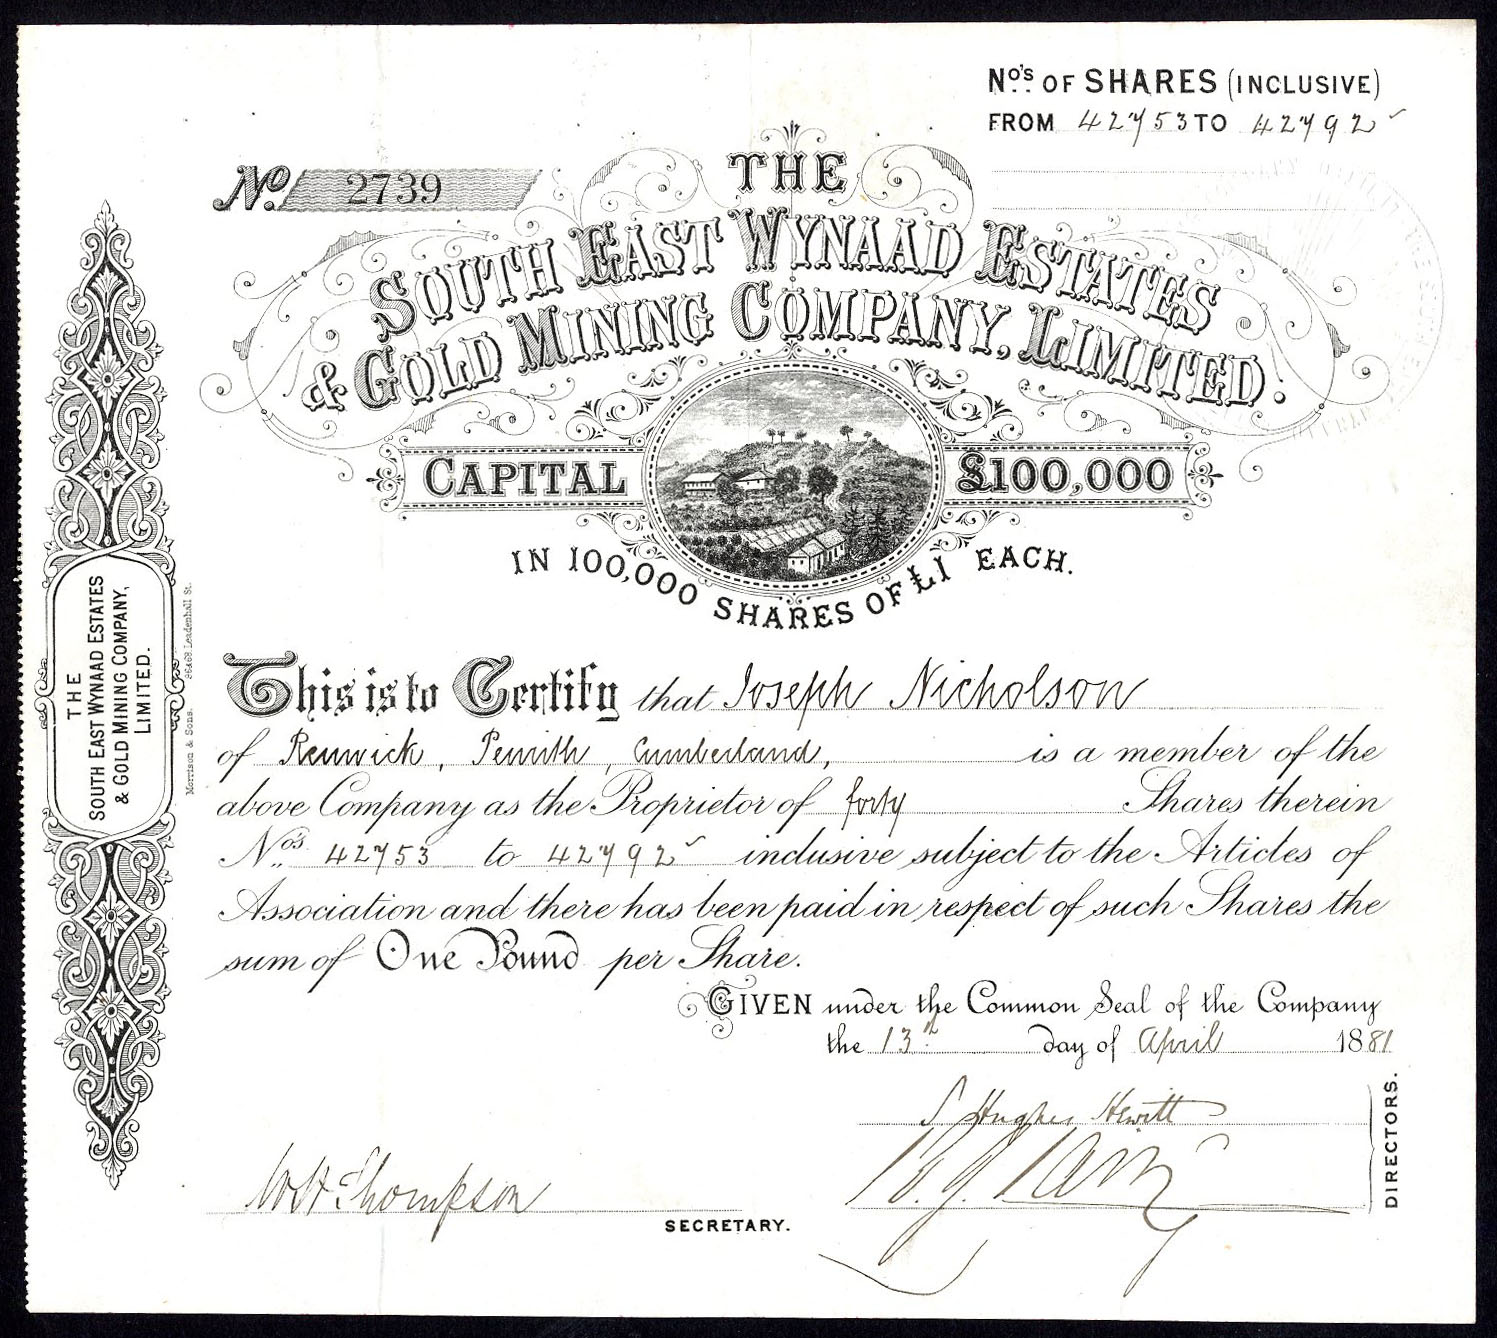 Nos. OF SHARES (INCLUSIVE)
FROM 42753 TO 42792
No. 2739
THE
SOUTH EAST WYNAAD ESTATES
& GOLD MINING COMPANY, LIMITED.
CAPITAL £100,000
IN 100,000 SHARES OF £1 EACH.
THE
SOUTH EAST WYNAAD ESTATES
& GOLD MINING COMPANY,
LIMITED.
Morrison & Sons. Leadenhall St.
This is to Certify that Joseph Nicholson
of Renwick, Penrith, Cumberland, is a member of the
above Company as the Proprietor of forty Shares therein
Nos. 42753 to 42792 inclusive subject to the Articles of
Association and there has been paid in respect of such Shares the
sum of One Pound per Share.
GIVEN under the Common Seal of the Company
the 13th day of April 1881
S. Hughes Hewitt
DIRECTORS.
W H Thompson
SECRETARY.